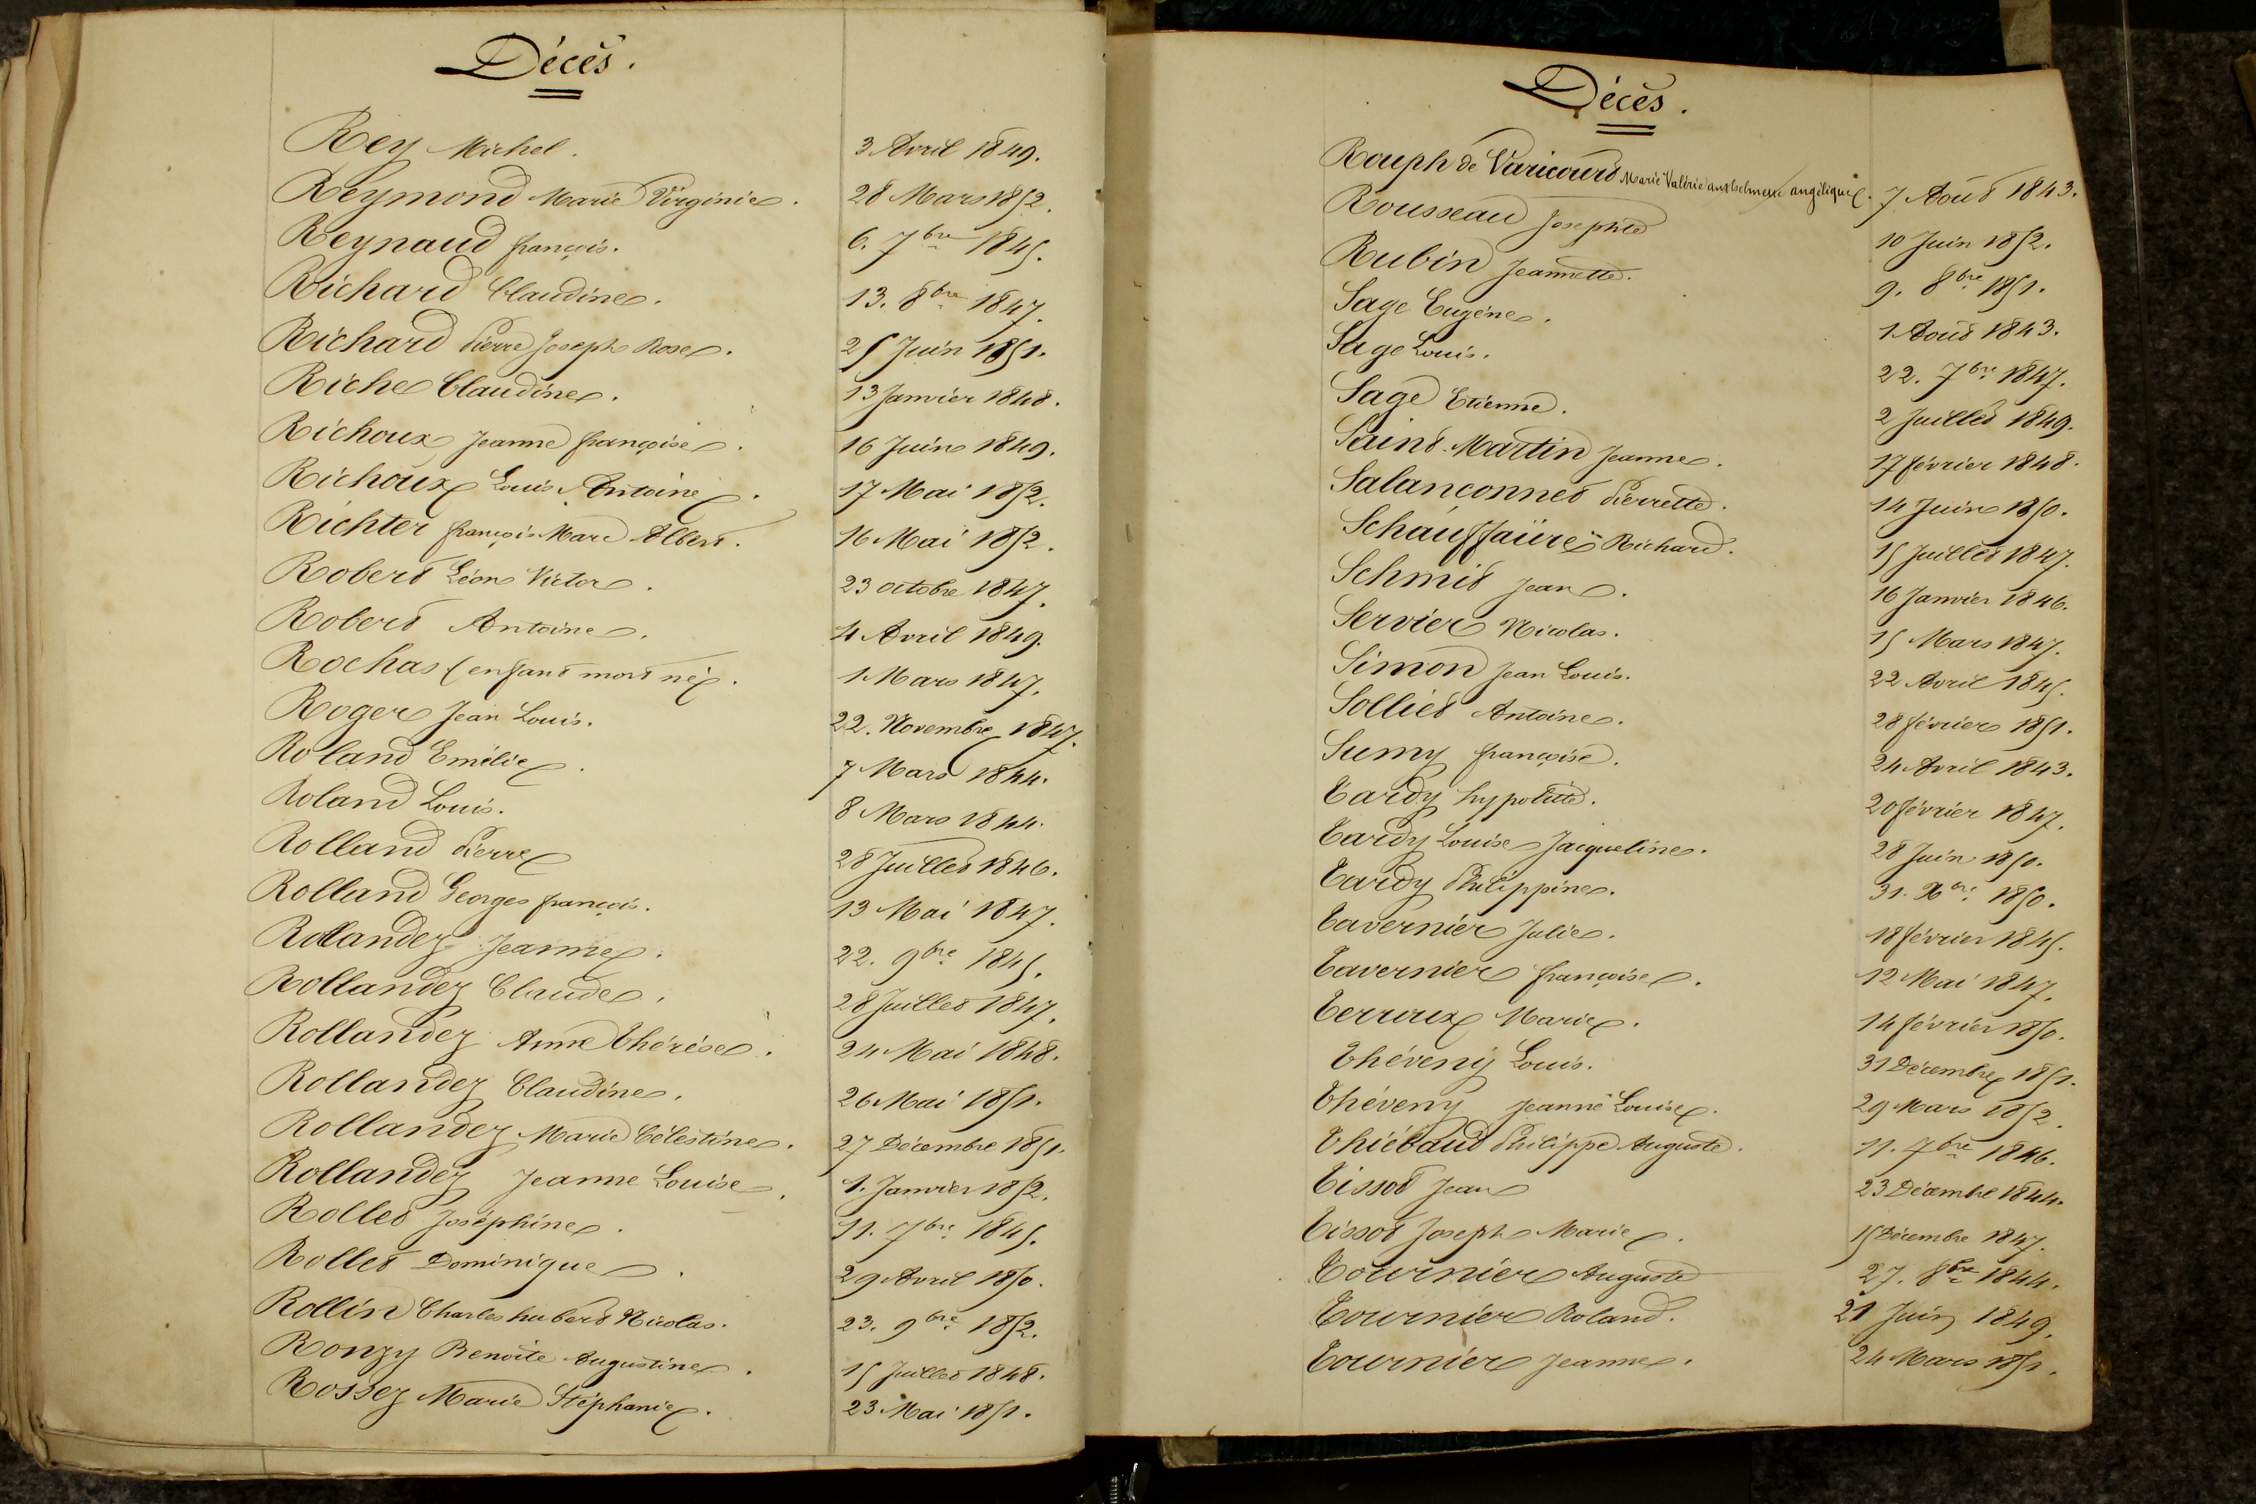 Décès.
Rey Michel. 3 Avril 1849.
Reymond Marie Virginie. 28 Mars 1852.
Reynaud françois. 6. 7bre 1845.
Richard Claudine. 13. 8bre 1847.
Richard Pierre Joseph Rose. 25 Juin 1851.
Riche Claudine. 13 Janvier 1848.
Richoux Jeanne françoise. 16 Juin 1849.
Richoux Louis Antoine. 17 Mai 1852.
Richter françois Marc Albert. 16 Mai 1852.
Robert Léon Victor. 23 octobre 1847.
Robert Antoine. 4 Avril 1849.
Rochas (enfant mort né). 1 Mars 1847.
Roger Jean Louis. 22. Novembre 1847.
Roland Emélie. 7 Mars 1844.
Roland Louis. 8 Mars 1844.
Rolland Pierre 28 Juillet 1846.
Rolland Georges françois. 13 Mai 1847.
Rollandez Jeanne. 22. 9bre 1845.
Rollandez Claude. 28 Juillet 1847.
Rollandez Anne Thérèse. 24 Mai 1848.
Rollandez Claudine. 26 Mai 1851.
Rollandez Marie Célestine. 27 Décembre 1851.
Rollandez Jeanne Louise. 1. Janvier 1852.
Rollet Joséphine. 11. 7bre 1845.
Rollet Dominique. 29 Avril 1850.
Rollin Charles hubert Nicolas. 23. 9bre 1852.
Ronzy Benoite Augustine. 15 Juillet 1848.
Rossez Marie Stéphanie. 23 Mai 1851.
Décès.
Rouph de Varicourt Marie Valérie angélique. 7 Août 1843.
Rousseau Josephte 10 Juin 1852.
Rubin Jeannette. 9. 8bre 1851.
Sage Eugène. 1 Août 1843.
Sage Louis. 22. 7bre 1847.
Sage Etienne. 2 Juillet 1849.
Saint-Martin Jeanne. 17 février 1848.
Salançonnet Pierrette. 14 Juin 1850.
Schauffaüre Richard. 15 Juillet 1847.
Schmit Jean. 16 Janvier 1846.
Servier Nicolas. 15 Mars 1847.
Simon Jean Louis. 22 Avril 1845.
Solliet Antoine. 28 février 1851.
Sumy françoise. 24 Avril 1843.
Tardy hypolitte. 20 février 1847.
Tardy Louise Jacqueline. 28 Juin 1850.
Tardy Philippine. 31. Xbre 1850.
Tavernier Julie. 18 février 1845.
Tavernier françoise. 12 Mai 1847.
Terroux Marie. 14 février 1850.
Théveny Louis. 31 Décembre 1851.
Théveny Jeanne Louise. 29 Mars 1852.
Thiébaud Philippe Auguste. 11. 7bre 1846.
Tissot Jean 23 Décembre 1844.
Tissot Joseph Marie. 15 Décembre 1847.
Tournier Auguste 27. 8bre 1844.
Tournier Roland. 21 Juin 1849.
Tournier Jeanne. 24 Mars 1851.